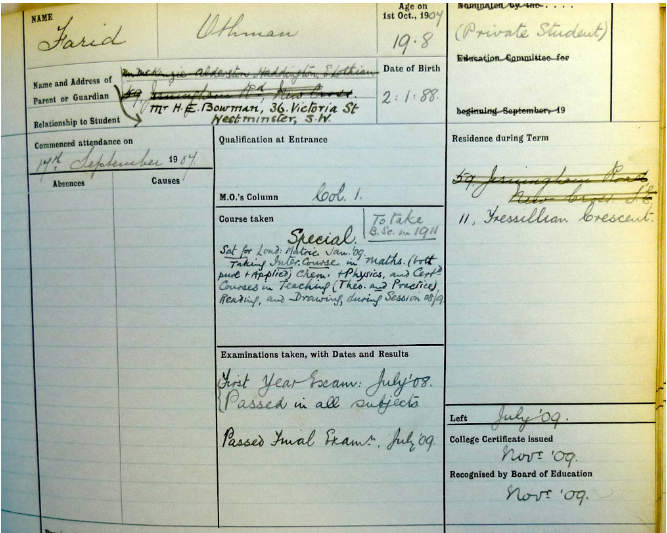 NAME
Farid Othman
Age on
1st Oct., 1907
19·8
Nominated by the . . . .
(Private Student)
Education Committee for
beginning September, 19
Name and Address of
Parent or Guardian
Relationship to Student
Mr McKenzie Alderston, Haddington, S. Lothian
59, Jerningham Rd, New Cross.
Mr H. E. Bowman, 36. Victoria St
Westminster, S.W.
Date of Birth
2:1:88.
Commenced attendance on
17th September 1907.
Absences Causes
Qualification at Entrance
M.O.'s Column Col. 1.
Course taken
To take
B.Sc. in 1911
Special.
Sat for Lond: Matric Jan. '09.
Taking Inter. Course in Maths. (both
pure & Applied) Chem. & Physics, and Certe
Courses in Teaching (Theo. and Practice),
Reading, and Drawing, during Session 08/9
Examinations taken, with Dates and Results
First Year Exam: July '08.
Passed in all subjects
Passed Final Exam., July '09.
Residence during Term
59, Jerningham Road
New Cross S.E.
11, Tressillian Crescent.
Left July '09.
College Certificate issued
Novr '09.
Recognised by Board of Education
Novr '09.